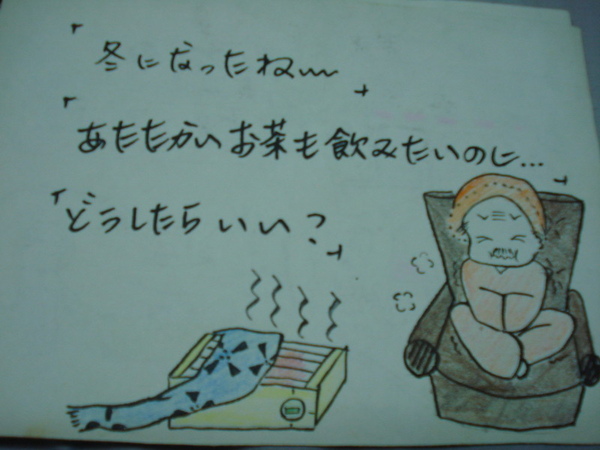 「冬になったね〜」
「あたたかいお茶も飲みたいのに…」
「どうしたらいい？」